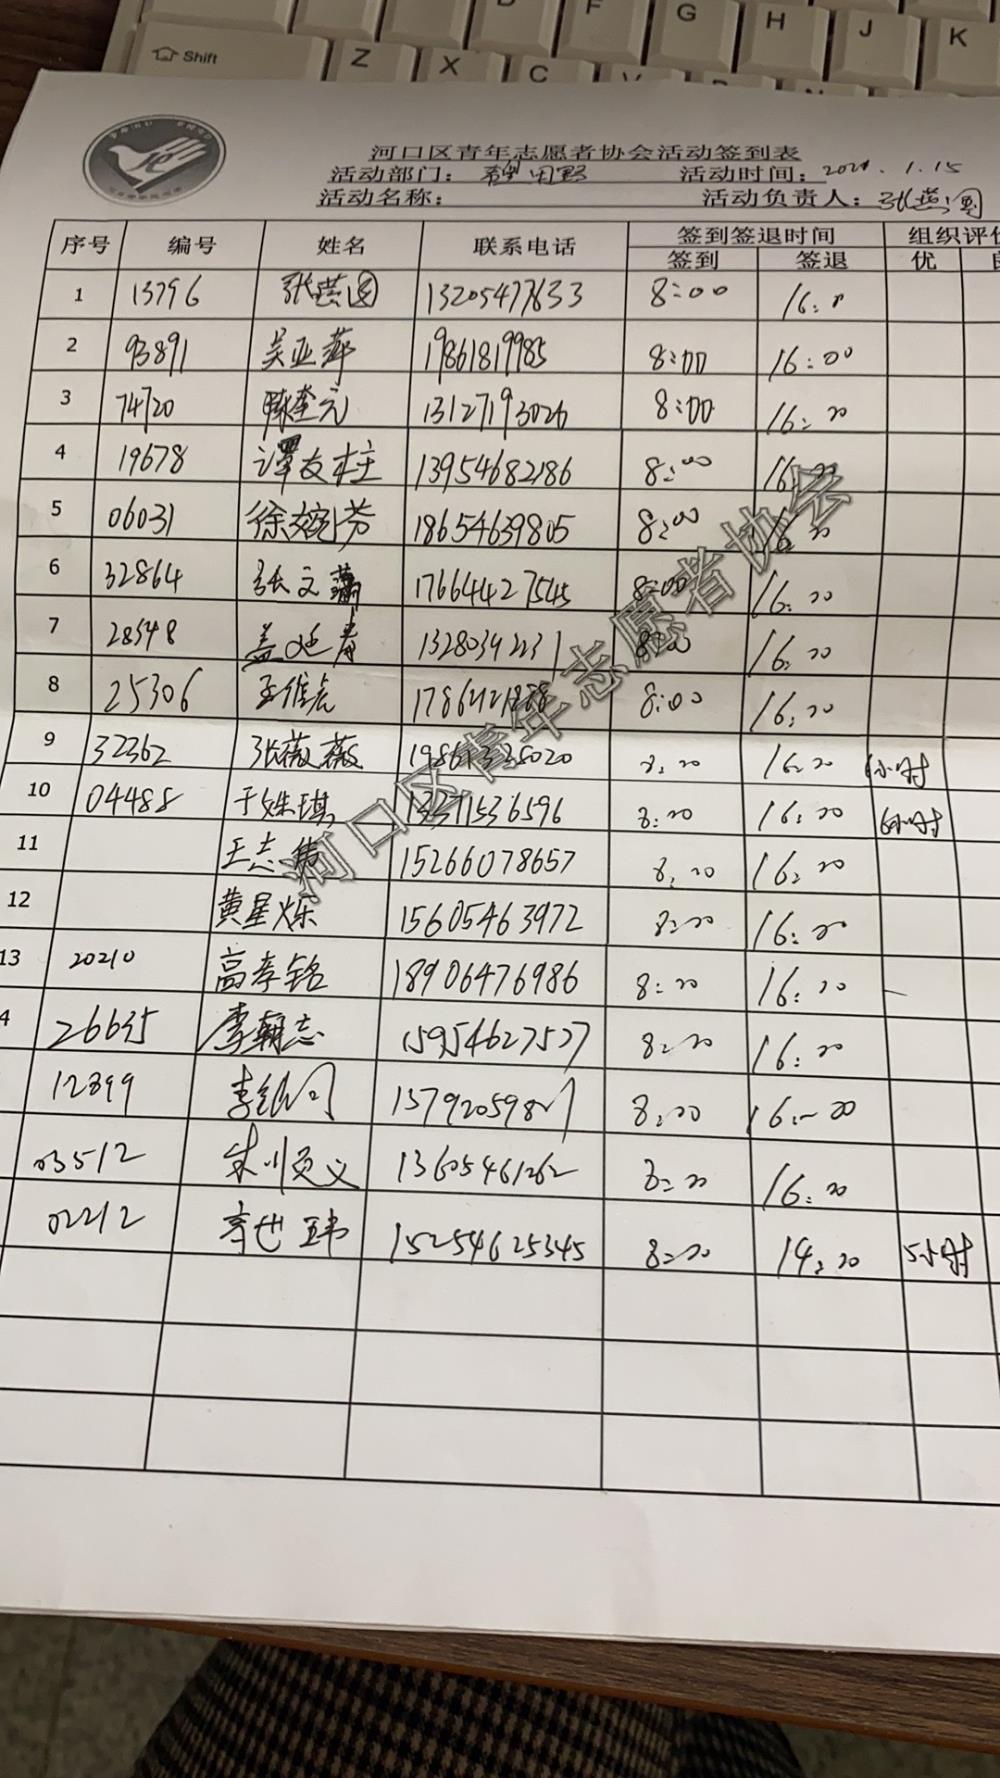 Shift Z X C D F G H J K
河口区青年志愿者协会活动签到表
活动部门： 希望田野 活动时间：2021.1.15
活动名称： 活动负责人：张燕图
序号 编号 姓名 联系电话 签到签退时间 组织评价
签到 签退 优
1 13796 张燕图 13205477633 8:00 16:
2 93891 吴亚萍 19861819985 8:00 16:00
3 74720 陈奎元 13127193026 8:00 16:00
4 19678 谭友柱 13954682186 8:00 16:00
5 06031 徐婉芬 18654639805 8:00 16:00
6 32864 张文 17664427545 8:00 16:00
7 28548 盖延青 13280342231 8:00 16:00
8 25306 王维虎 8:00 16:00
9 32362 张薇薇 8:00 16:00 6小时
10 04488 于姝琪 13371536596 8:00 16:00 6小时
11 王志伟 15266078657 8:00 16:00
12 黄星烁 15605463972 8:00 16:00
13 20210 高孝铭 18906476986 8:00 16:00
4 26635 李朝志 15954627527 8:00 16:00
12899 8:00 16:00
03512 朱顺义 13605461262 8:00 16:00
02212 李世玮 15254625345 8:00 14:00 5小时
河口区青年志愿者协会